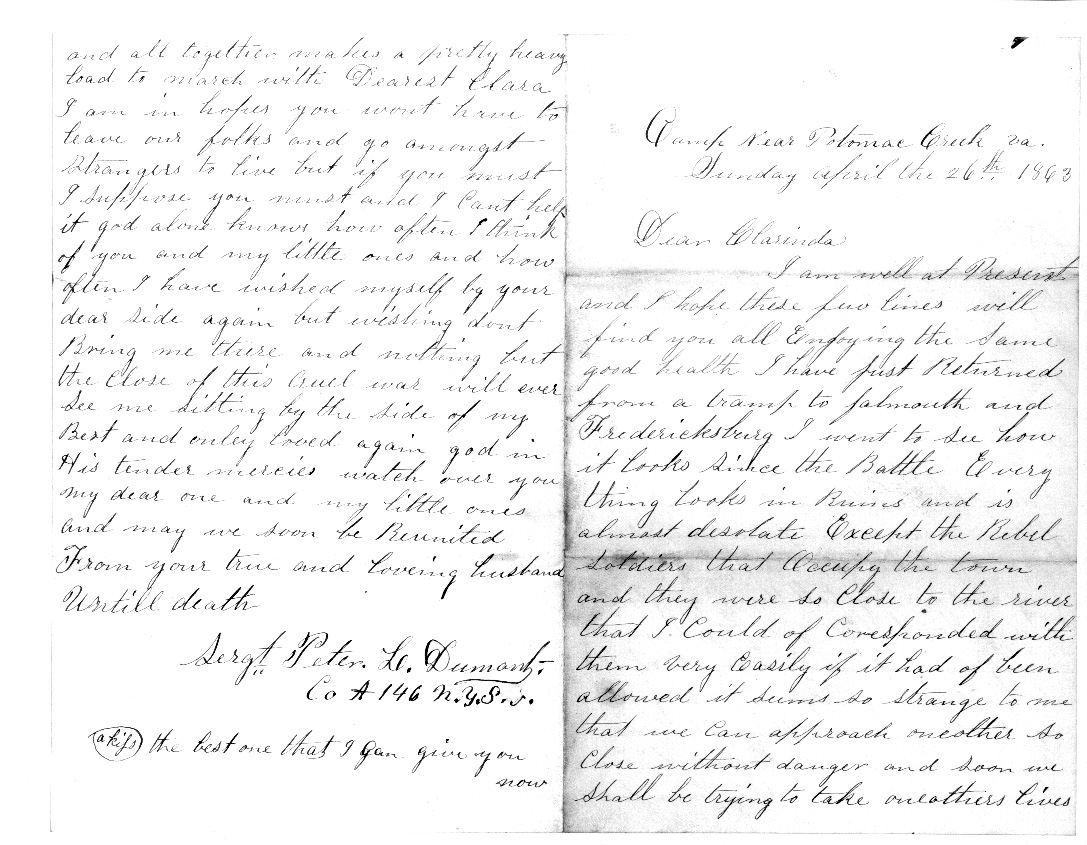 and all together makes a pretty heavy
load to march with Dearest Clara
I am in hopes you wont have to
leave our folks and go amongst
Strangers to live but if you must
I suppose you must and I Cant help
it god alone knows how often I think
of you and my little ones and how
often I have wished myself by your
dear side again but wishing dont
Bring me there and nothing but
the Close of this Cruel war will ever
See me sitting by the side of my
Best and onley loved again god in
His tender mercies watch over you
my dear one and my little ones
and may we soon be Reunited
From your true and loveing husband
Untill death
Sergt Peter. L. Dumont.
Co A 146 N.Y.S.V.
a kiss the best one that I Can give you
now
Camp Near Potomac Creek va.
Sunday april the 26th 1863
Dear Clarinda
I am well at Present
and I hope these few lines will
find you all Enjoying the Same
good health I have just Returned
from a tramp to falmouth and
Fredericksburg I went to see how
it looks since the Battle Every
thing looks in Ruins and is
almost desolate Except the Rebel
soldiers that Occupy the town
and they were so Close to the river
that I Could of Coresponded with
them very Easily if it had of been
allowed it seems so strange to me
that we Can approach oneother so
Close without danger and soon we
shall be trying to take oneothers lives